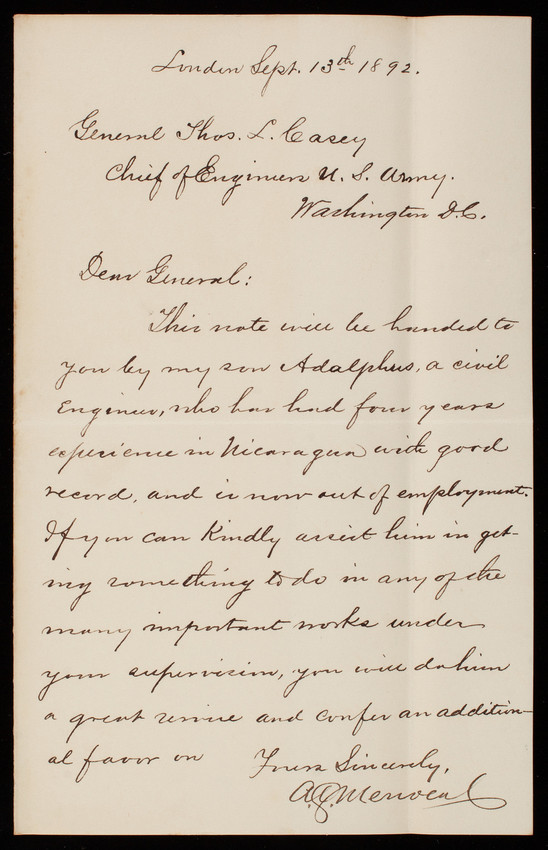 London Sept. 13th 1892.
General Thos. L. Casey
Chief of Engineers U. S. Army.
Washington D.C.
Dear General:
This note will be handed to
you by my son Adalphus, a civil
Engineer, who has had four years
experience in Nicaragua with good
record, and is now out of employment.
If you can Kindly assist him in get-
ing something to do in any of the
many important works under
your supervision, you will do him
a great service and confer an addition-
al favor on
Yours Sincerely,
A.G. Menocal